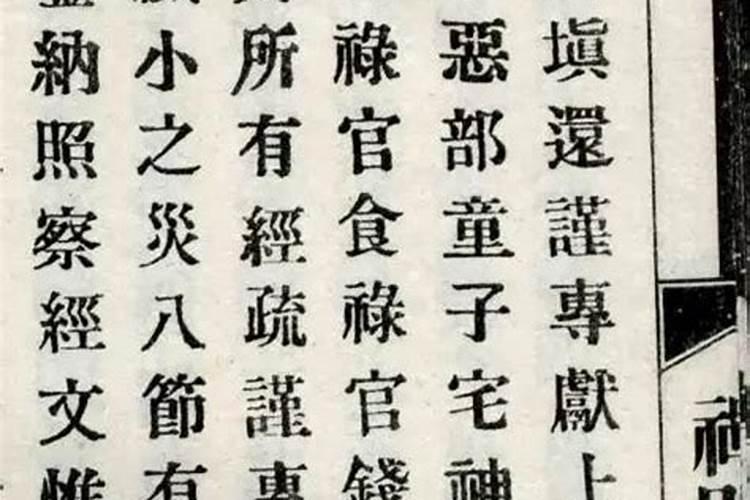 填還謹專獻上
惡部童子宅神
祿官食祿官錢
所有經疏謹專
小之災八節有
納照察經文惟